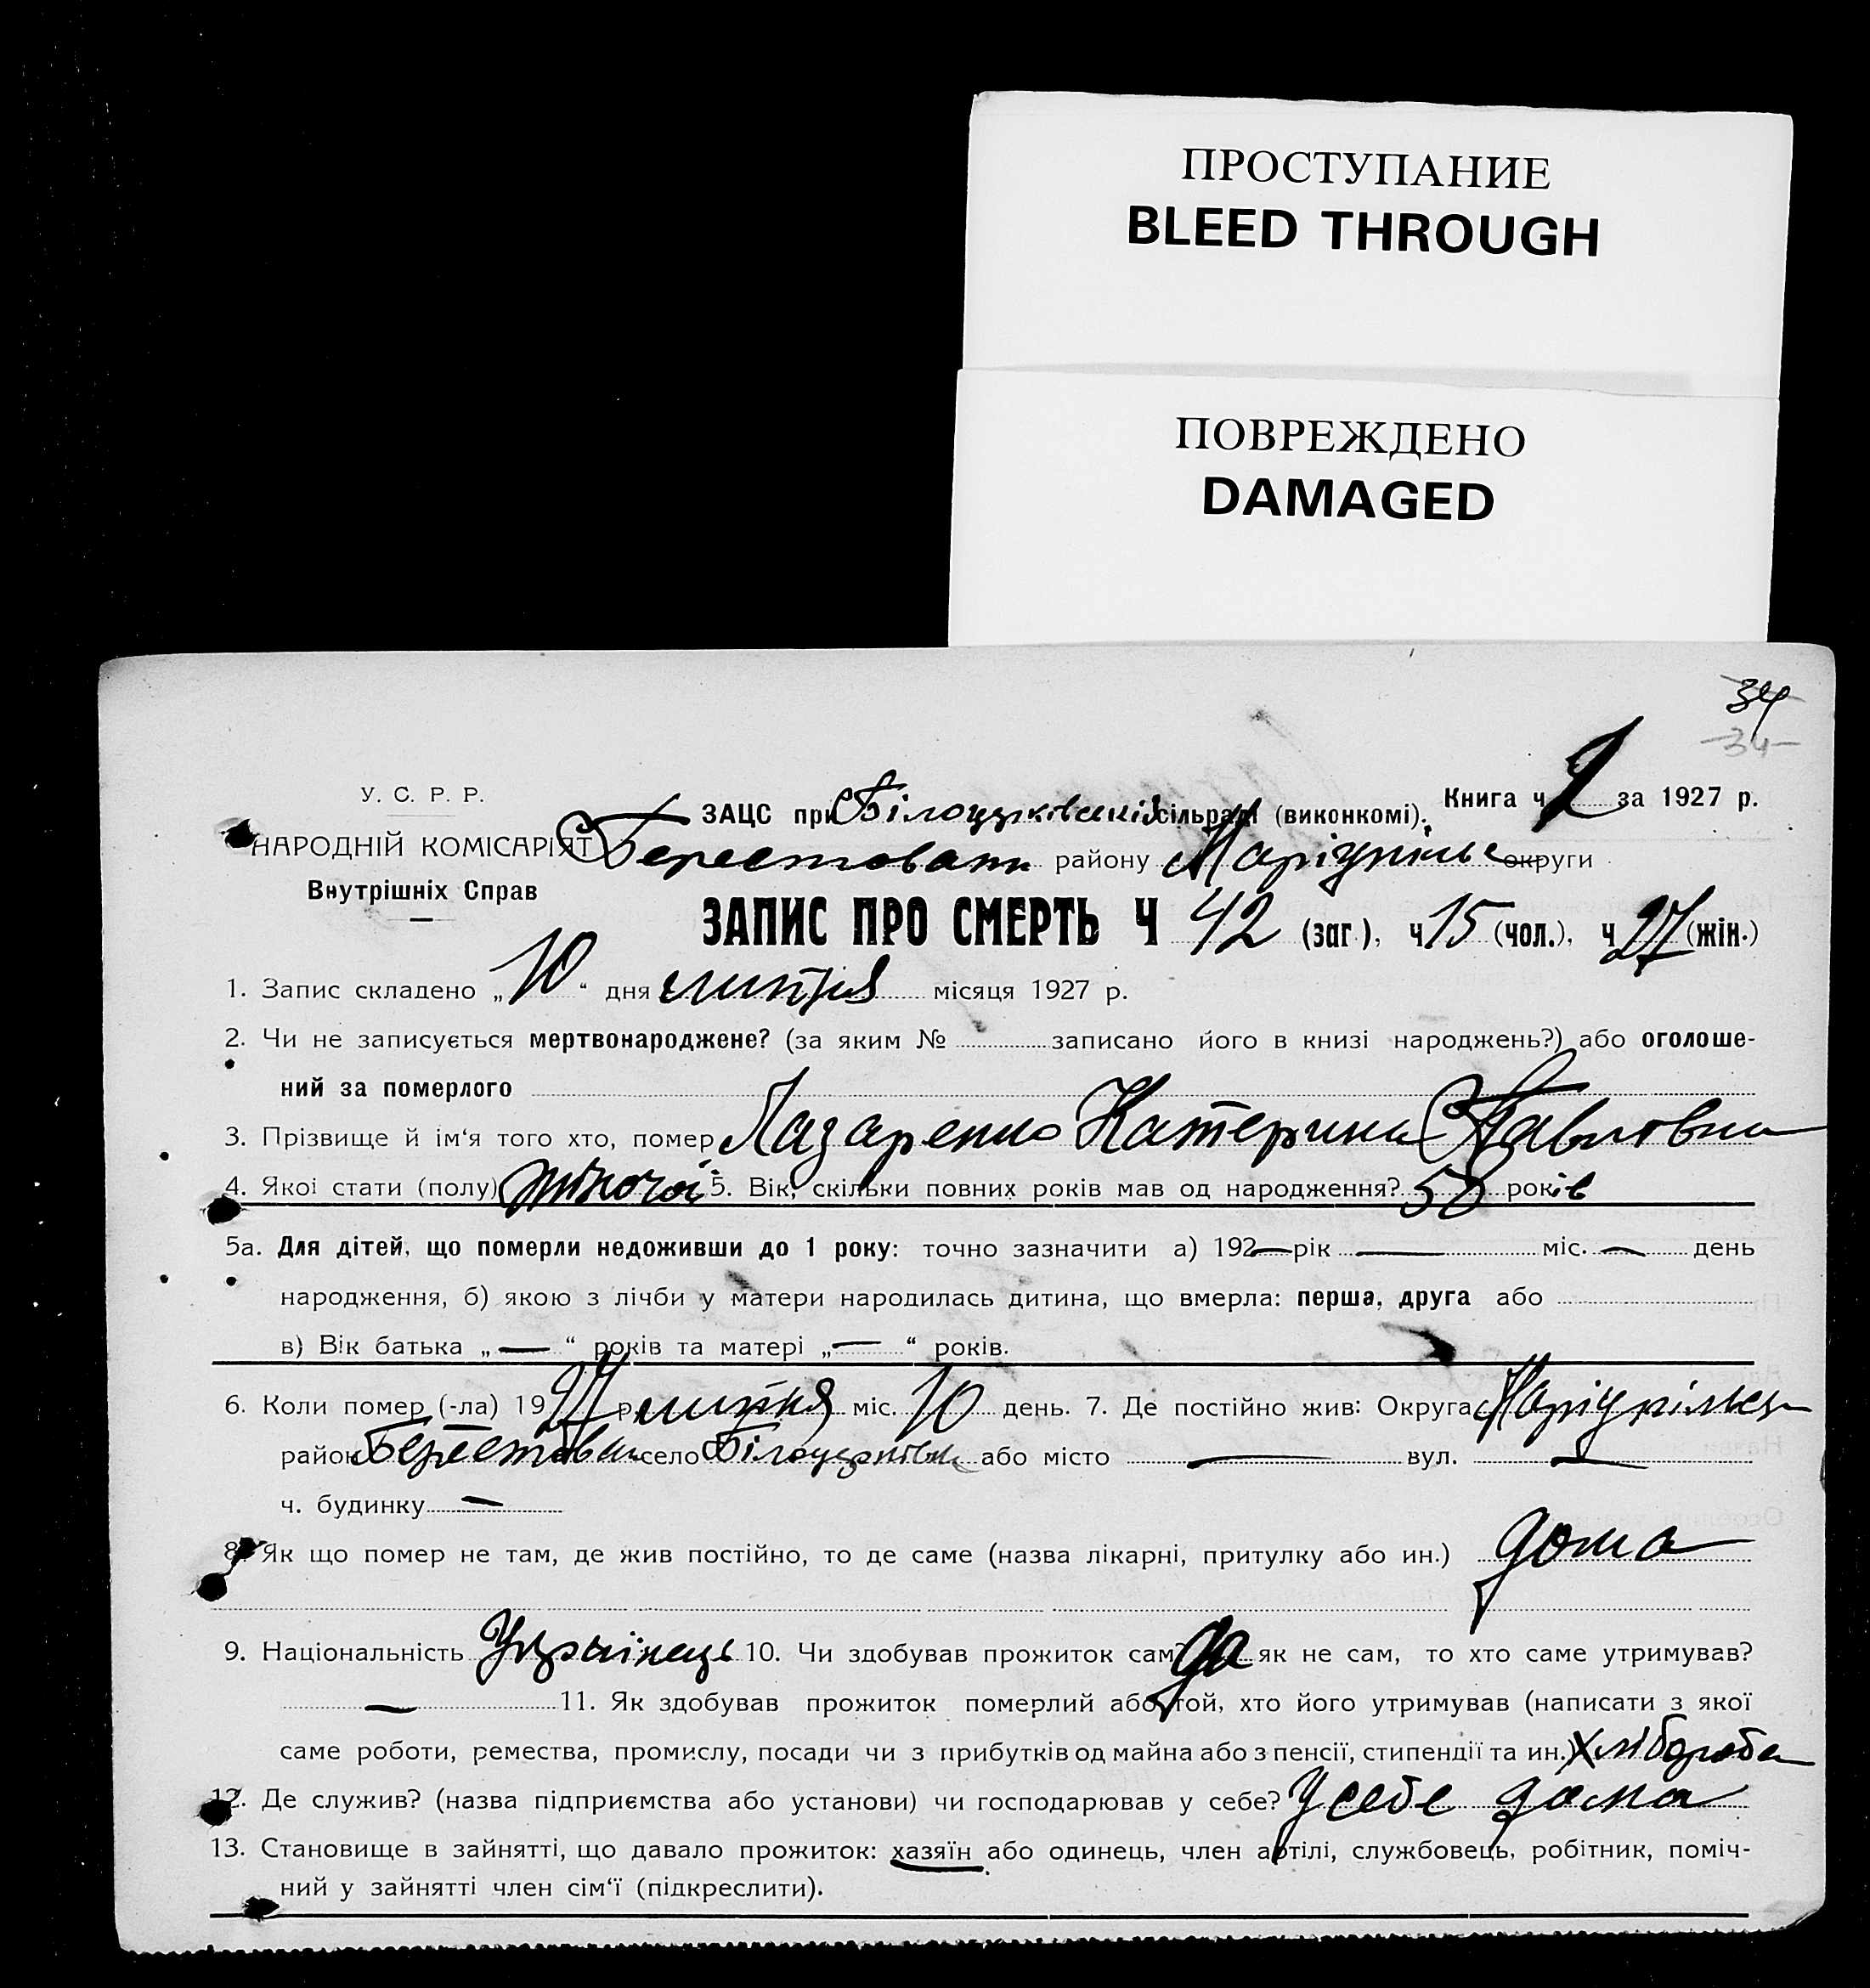 ПРОСТУПАНИЕ
BLEED THROUGH
ПОВРЕЖДЕНО
DAMAGED
34
34
У. С. Р. Р.
НАРОДНІЙ КОМІСАРІЯТ
Внутрішніх Справ
ЗАЦС при Білоцерківській сільраді (виконкомі), Книга ч 2 за 1927 р.
Берестован району Маріупільс округи
ЗАПИС ПРО СМЕРТЬ Ч 42 (заг.), ч 15 (чол.), ч 27 (жін.)
1. Запис складено „10“ дня липня місяця 1927 р.
2. Чи не записується мертвонароджене? (за яким № записано його в книзі народжень?) або оголоше-
ний за померлого
3. Прізвище й ім‘я того хто, помер Лазаренко Катерина Павловна
4. Якої стати (полу) жіночої 5. Вік, скільки повних років мав од народження? 58 років
5а. Для дітей, що померли недоживши до 1 року: точно зазначити а) 192— рік — міс. — день
народження, б) якою з лічби у матери народилась дитина, що вмерла: перша, друга або
в) Вік батька „—“ років та матері „—“ років.
6. Коли помер (-ла) 1927 р. липня міс. 10 день. 7. Де постійно жив: Округа Маріупільск
район Берестован село Білоцерківка або місто — вул. —
ч. будинку —
8. Як що помер не там, де жив постійно, то де саме (назва лікарні, притулку або ин.) дома
9. Національність Українець 10. Чи здобував прожиток сам? да як не сам, то хто саме утримував?
— 11. Як здобував прожиток померлий або той, хто його утримував (написати з якої
саме роботи, ремества, промислу, посади чи з прибутків од майна або з пенсії, стипендії та ин.) Хлібороба
12. Де служив? (назва підприємства або установи) чи господарював у себе? У себе дома
13. Становище в зайнятті, що давало прожиток: хазяїн або одинець, член артілі, службовець, робітник, поміч-
ний у зайнятті член сім‘ї (підкреслити).